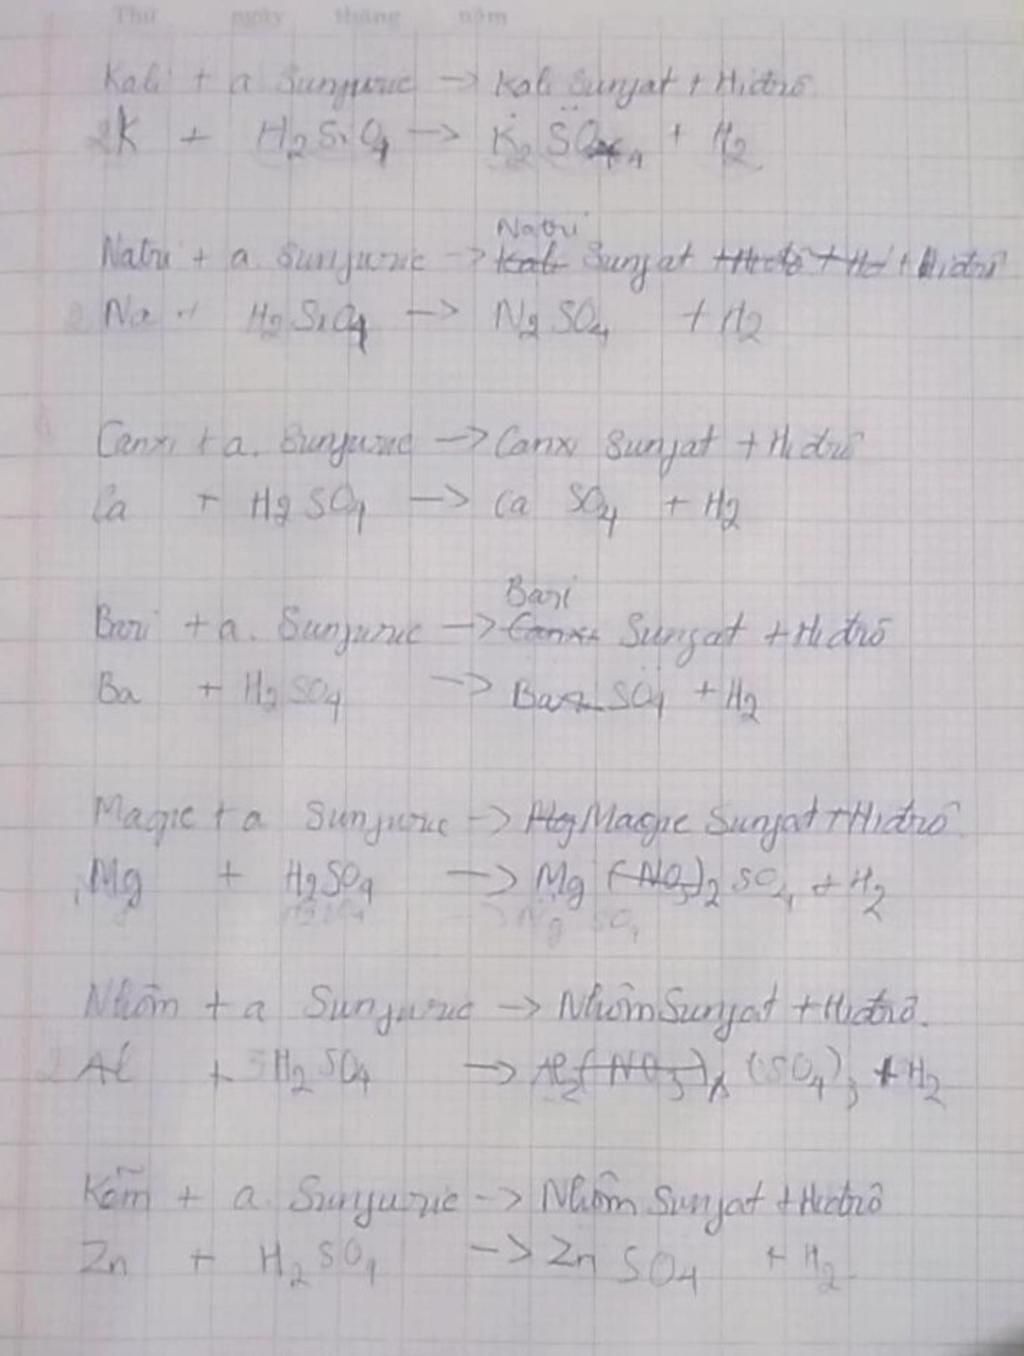 Thứ ngày tháng năm
Kali + a Sunfuric -> Kali Sunfat + Hiđrô
2K + H2SiO4 -> K2 SO4 + H2
Natri + a. Sunfuric -> Natri Sunfat + Hiđrô
2 Na + H2SiO4 -> N2 SO4 + H2
Canxi + a. Sunfuric -> Canxi Sunfat + Hiđrô
Ca + H2SO4 -> Ca SO4 + H2
Bari + a. Sunfuric -> Bari Sunfat + Hiđrô
Ba + H2SO4 -> Ba SO4 + H2
Magie + a Sunfuric -> Magie Sunfat + Hiđrô
Mg + H2SO4 -> Mg SO4 + H2
Nhôm + a Sunfuric -> Nhôm Sunfat + Hiđrô.
2 Al + 3H2SO4 -> Al2 (SO4)3 + H2
Kẽm + a. Sunfuric -> Nhôm Sunfat + Hiđrô
Zn + H2SO4 -> Zn SO4 + H2